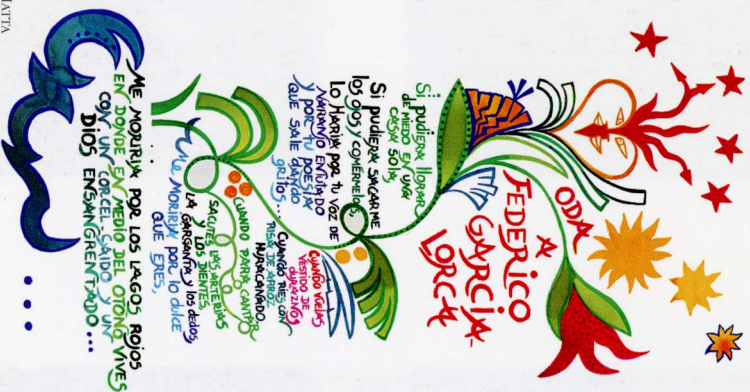 ODA
A
FEDERICO
GARCÍA-
LORCA
Si pudiera llorar
de miedo en una
casa sola,
Si pudiera sacarme
los ojos y comérmelos,
Lo haría por tu voz de
naranjo enlutado
y por tu poesía
que sale dando
gritos...
CUANDO VUELAS
VESTIDO DE
durazno,
CUANDO RÍES CON
RISA DE ARROZ
HURACANADO,
CUANDO PARA CANTAR
SACUDES LAS ARTERIAS
Y LOS DIENTES,
LA GARGANTA Y los dedos,
me MORIRÍA por lo dulce
QUE ERES,
ME MORIRÍA POR LOS LAGOS ROJOS
EN DONDE EN MEDIO DEL OTOÑO VIVES
CON UN CORCEL CAÍDO Y UN
DIOS ENSANGRENTADO...
MATTA